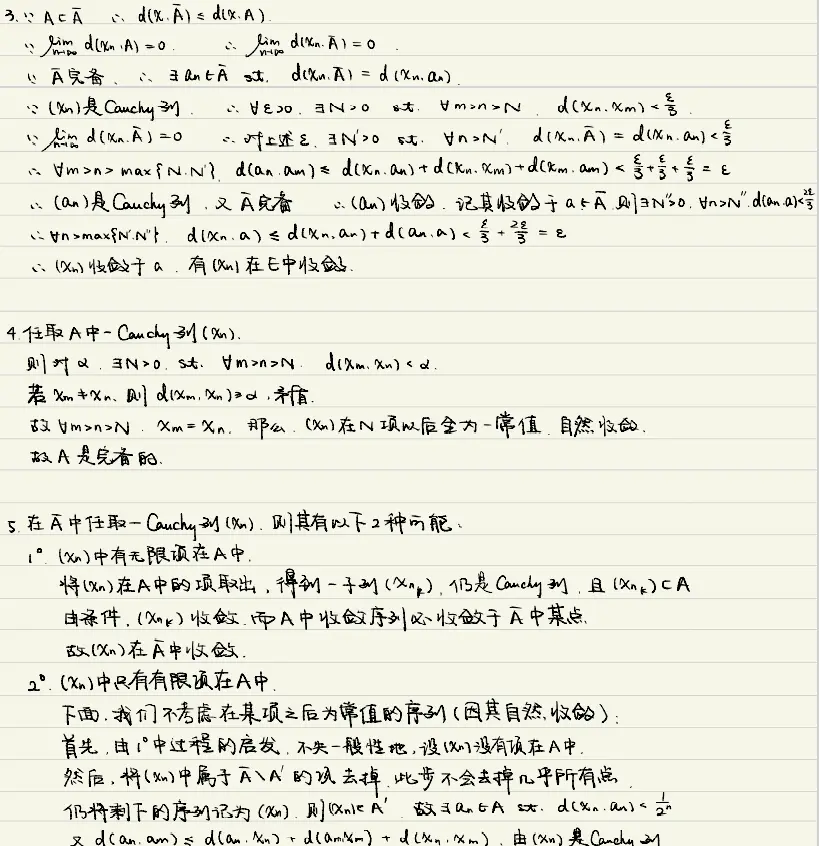 3. ∵ A⊂Ā ∴ d(x,Ā) ≤ d(x,A).
∵ lim_{n→∞} d(xn,A)=0. ∴ lim_{n→∞} d(xn,Ā)=0.
∵ Ā完备. ∴ ∃ an∈Ā st. d(xn,Ā) = d(xn,an).
∵ (xn)是Cauchy列. ∴ ∀ε>0, ∃N>0 st. ∀m>n>N, d(xn,xm)<ε/3.
∵ lim_{n→∞} d(xn,Ā)=0 ∴ 对上述ε, ∃N'>0 st. ∀n>N', d(xn,Ā) = d(xn,an)<ε/3
∴ ∀m>n>max{N,N'}, d(an,am) ≤ d(xn,an)+d(xn,xm)+d(xm,am) < ε/3+ε/3+ε/3 = ε
∴ (an)是Cauchy列, 又Ā完备 ∴(an)收敛. 记其收敛于a∈Ā, 则∃N''>0, ∀n>N'', d(an,a)<2ε/3
∴∀n>max{N',N''}, d(xn,a) ≤ d(xn,an)+d(an,a) < ε/3+2ε/3 = ε
∴ (xn)收敛于a, 有(xn)在E中收敛.
4. 任取A中一Cauchy列(xn).
则对α, ∃N>0, st. ∀m>n>N, d(xm,xn)<α.
若xm≠xn, 则d(xm,xn)≥α, 矛盾.
故∀m>n>N, xm=xn, 那么, (xn)在N项以后全为一常值, 自然收敛.
故A是完备的.
5. 在Ā中任取一Cauchy列(xn), 则其有以下2种可能:
1°. (xn)中有无限项在A中.
将(xn)在A中的项取出, 得到一子列(xnk), 仍是Cauchy列, 且(xnk)⊂A
由条件, (xnk)收敛, 而A中收敛序列必收敛于Ā中某点.
故(xn)在Ā中收敛.
2°. (xn)中只有有限项在A中.
下面, 我们不考虑在某项之后为常值的序列(因其自然收敛):
首先, 由1°中过程的启发, 不失一般性地, 设(xn)没有项在A中.
然后, 将(xn)中属于Ā\A'的项去掉, 此步不会去掉几乎所有点
仍将剩下的序列记为(xn), 则(xn)∈A' 故∃an∈A st. d(xn,an)<1/2ⁿ
又d(an,am) ≤ d(an,xn) + d(am,xm) + d(xn,xm), 由(xn)是Cauchy列